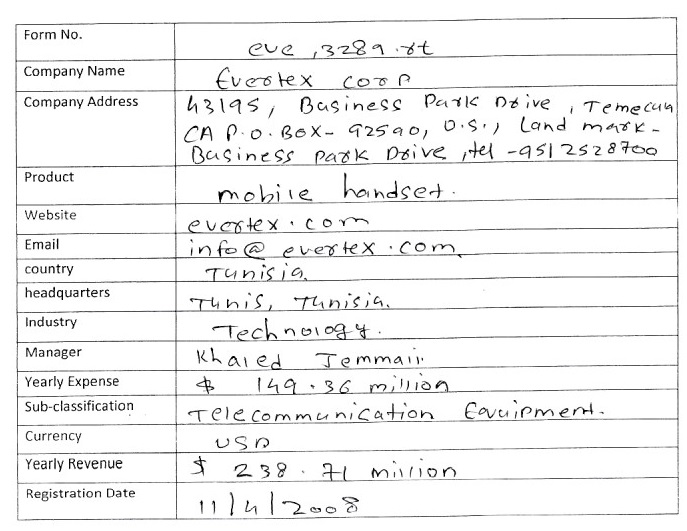 Form No. eve ,3289.rt
Company Name Evertex corp
Company Address 43195, Business Park Drive , Temecula
CA P.O. Box- 92590, U.S., Land mark-
Business park Drive ,tel -951 2528700
Product mobile handset.
Website evertex.com
Email info@evertex.com.
country Tunisia.
headquarters Tunis, Tunisia.
Industry Technology.
Manager Khaled Jemmali.
Yearly Expense $ 149.36 million
Sub-classification Telecommunication Equipment.
Currency USD
Yearly Revenue $ 238.71 million
Registration Date 11/4/2008